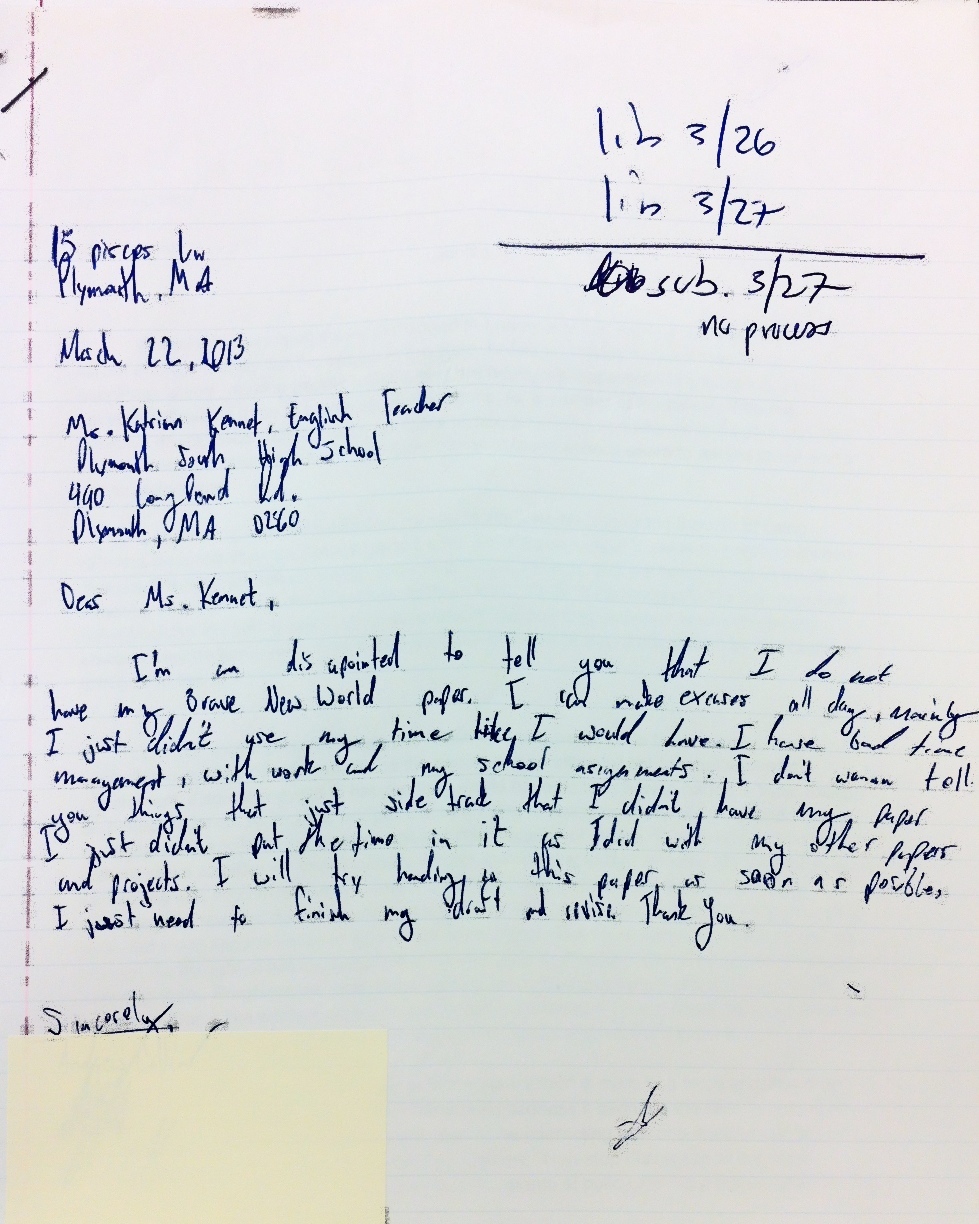 lib 3/26
lib 3/27
sub. 3/27
no process
15 pisces Ln
Plymouth, MA
March 22, 2013
Ms. Katrina Kennet, English Teacher
Plymouth South High School
490 Long Pond Rd.
Plymouth, MA 02360
Dear Ms. Kennet,
I'm am disapointed to tell you that I do not
have my Brave New World paper. I can make excuses all day, mainly
I just didn't use my time like I would have. I have bad time
management, with work and my school asignements. I don't wanna tell
you things that just side track that I didn't have my paper
I just didn't put the time in it as I did with my other papers
and projects. I will try handing in this paper as soon as posible,
I just need to finish my draft and revise. Thank you.
Sincerely,